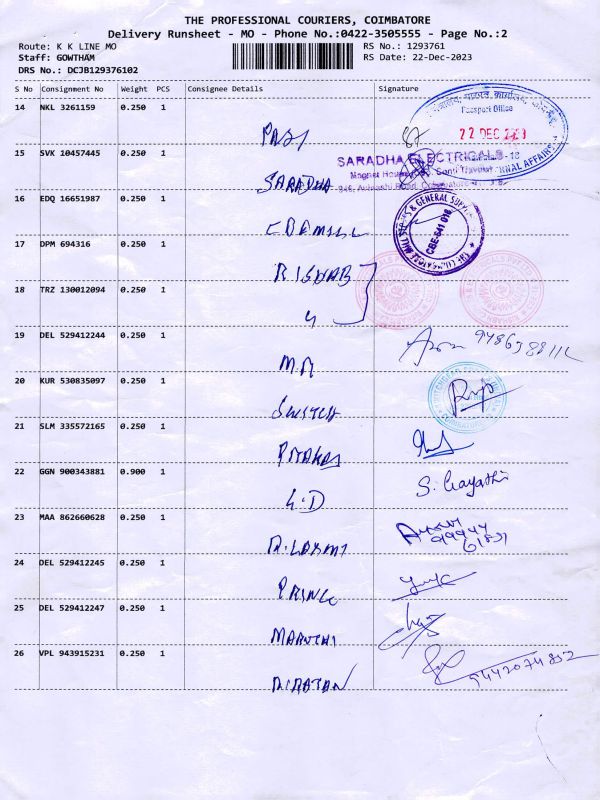 THE PROFESSIONAL COURIERS, COIMBATORE
Delivery Runsheet - MO - Phone No.:0422-3505555 - Page No.:2
Route: K K LINE MO
RS No.: 1293761
Staff: GOWTHAM
RS Date: 22-Dec-2023
DRS No.: DCJB129376102
S No Consignment No Weight PCS Consignee Details Signature
14 NKL 3261159 0.250 1
Passport Office
22 DEC 2023
15 SVK 10457445 0.250 1
SARADHA ELECTRICALS
SARADHA
16 EDQ 16651987 0.250 1
& GENERAL SUPP
CBE-641 018
17 DPM 694316 0.250 1
RISHAB
18 TRZ 130012094 0.250 1
19 DEL 529412244 0.250 1
M.R
20 KUR 530835097 0.250 1
SWITCH
21 SLM 335572165 0.250 1
22 GGN 900343881 0.900 1
S. Gayathri
G.D
23 MAA 862660628 0.250 1
R.LAXMI
24 DEL 529412245 0.250 1
PRINCE
25 DEL 529412247 0.250 1
MARUTHI
26 VPL 943915231 0.250 1
9442074852
R.RATAN